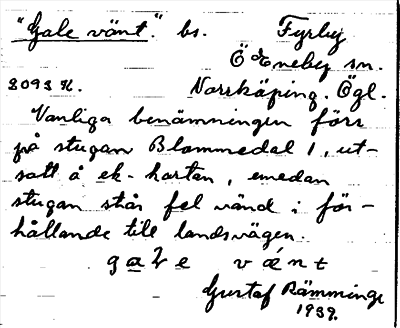 "Gale vänt." bs. Fyrby
Ö Eneby sn.
2092 K. Norrköping. Ögl.
Vanliga benämningen förr
på stugan Blommedal 1, ut-
satt å ek-kartan, emedan
stugan står fel vänd i för-
hållande till landsvägen.
Gustaf Rämminge
1939.